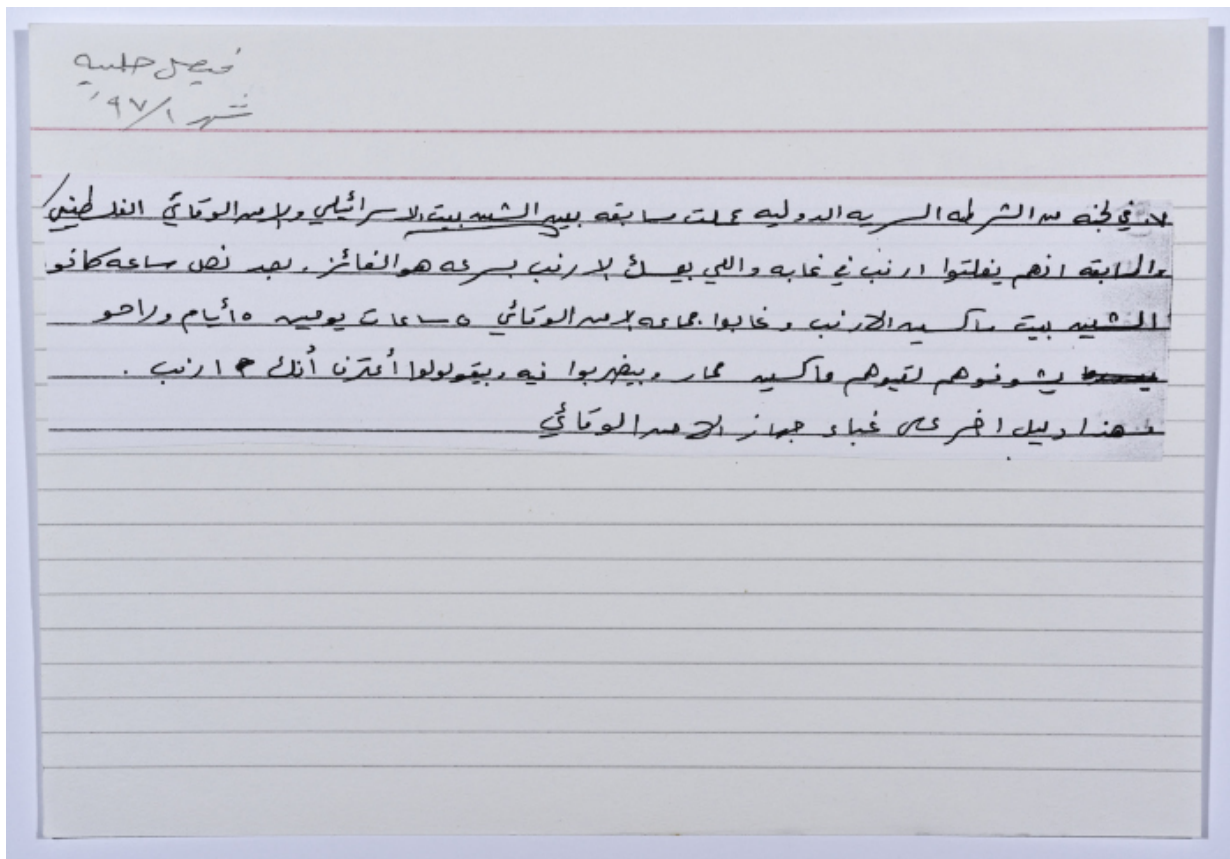 فيصل حلسه
شهر ٩٧/١
في لجنه من الشرطه السريه الدوليه عملت مسابقه بين الشين بيت الاسرائيلي والامن الوقائي الفلسطيني
والسابقه انهم يفلتوا ارنب في غابه واللي بمسك الارنب بسرعه هو الفائز. بعد نص ساعه كانو
الشين بيت ماكسين الارنب وغابوا جماعه الامن الوقائي ٥ ساعات يومين ٥ أيام وراحو
يشوفوهم لقيوهم ماكسين حمار وبيضربوا فيه وبيقولولوا أعترف أنك ارنب .
وهذا دليل اخر على غباء جهاز الامن الوقائي